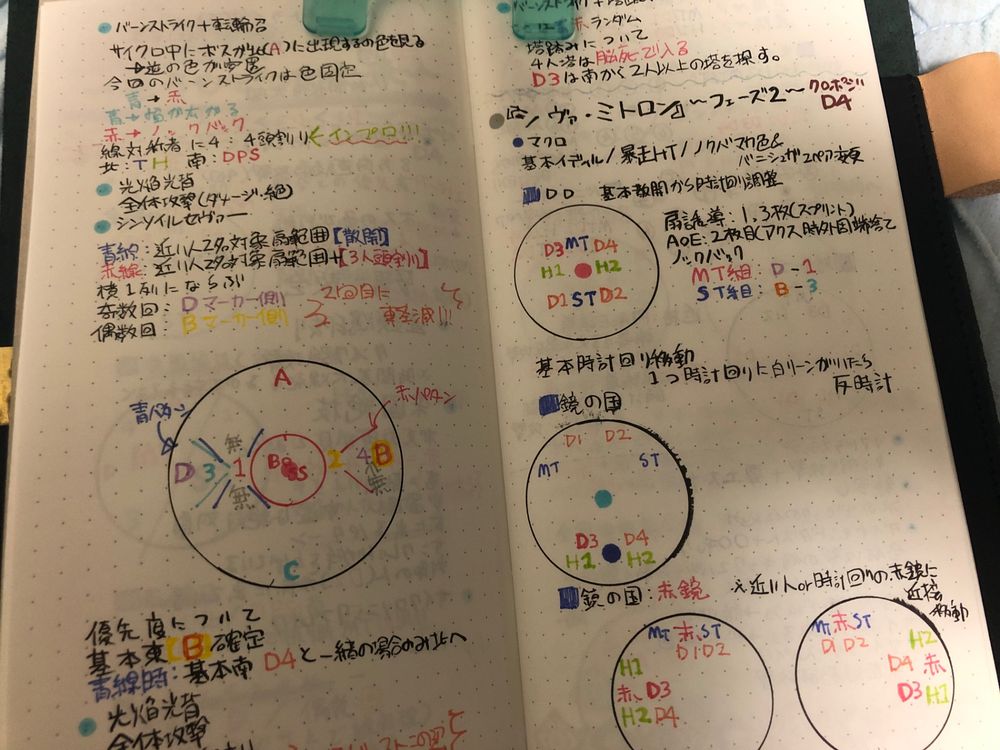 バーンストライク+転輪召
サイクロ中にボスが北(A)に出現するの色を見る
→逆の色が安置
今回のバーンストライクは色固定
青→赤
赤→ノックバック
線対称者に4:4頭割り←インプロ!!!
北:TH 南:DPS
光焔光背
全体攻撃(ダメージ:絶)
シンソイルセヴァー
青線:近い人2名対象扇範囲【散開】
赤線:近い人2名対象扇範囲+【3人頭割り】
横1列にならぶ
奇数回:Dマーカー側
偶数回:Bマーカー側
2回目に
軽減!!!
A
青パターン
赤パターン
D 3 無 1 無 BOSS 2 4 B 無
C
優先度について
基本東【B】確定
青線時:基本南 D4と一緒の場合のみ北へ
光焔光背
全体攻撃
ランダム
塔踏みについて
4人塔は脳死で入る
D3は南から2人以上の塔を探す。
『シヴァ・ミトロン』~フェーズ2~
D4
マクロ
基本イディル/暴走HT/ノクバマクロ色&
DD 基本散開から時計回り調整
D3 MT D4
H1 H2
D1 ST D2
扇誘導:1,3枚(スプリント)
AoE:2枚目(アクス時外周捨て
ノックバック
MT組:D-1
ST組:B-3
基本時計回り移動
1つ時計回りに白リーンがいたら
反時計
鏡の国
D1 D2
MT ST
D3 D4
H1 H2
鏡の国:赤鏡 ※近い人or時計回りの赤鏡に
移動
MT 赤 ST
D1 D2
H1
赤 D3
H2 D4
MT 赤 ST
D1 D2
H2
D4 赤
D3 H1